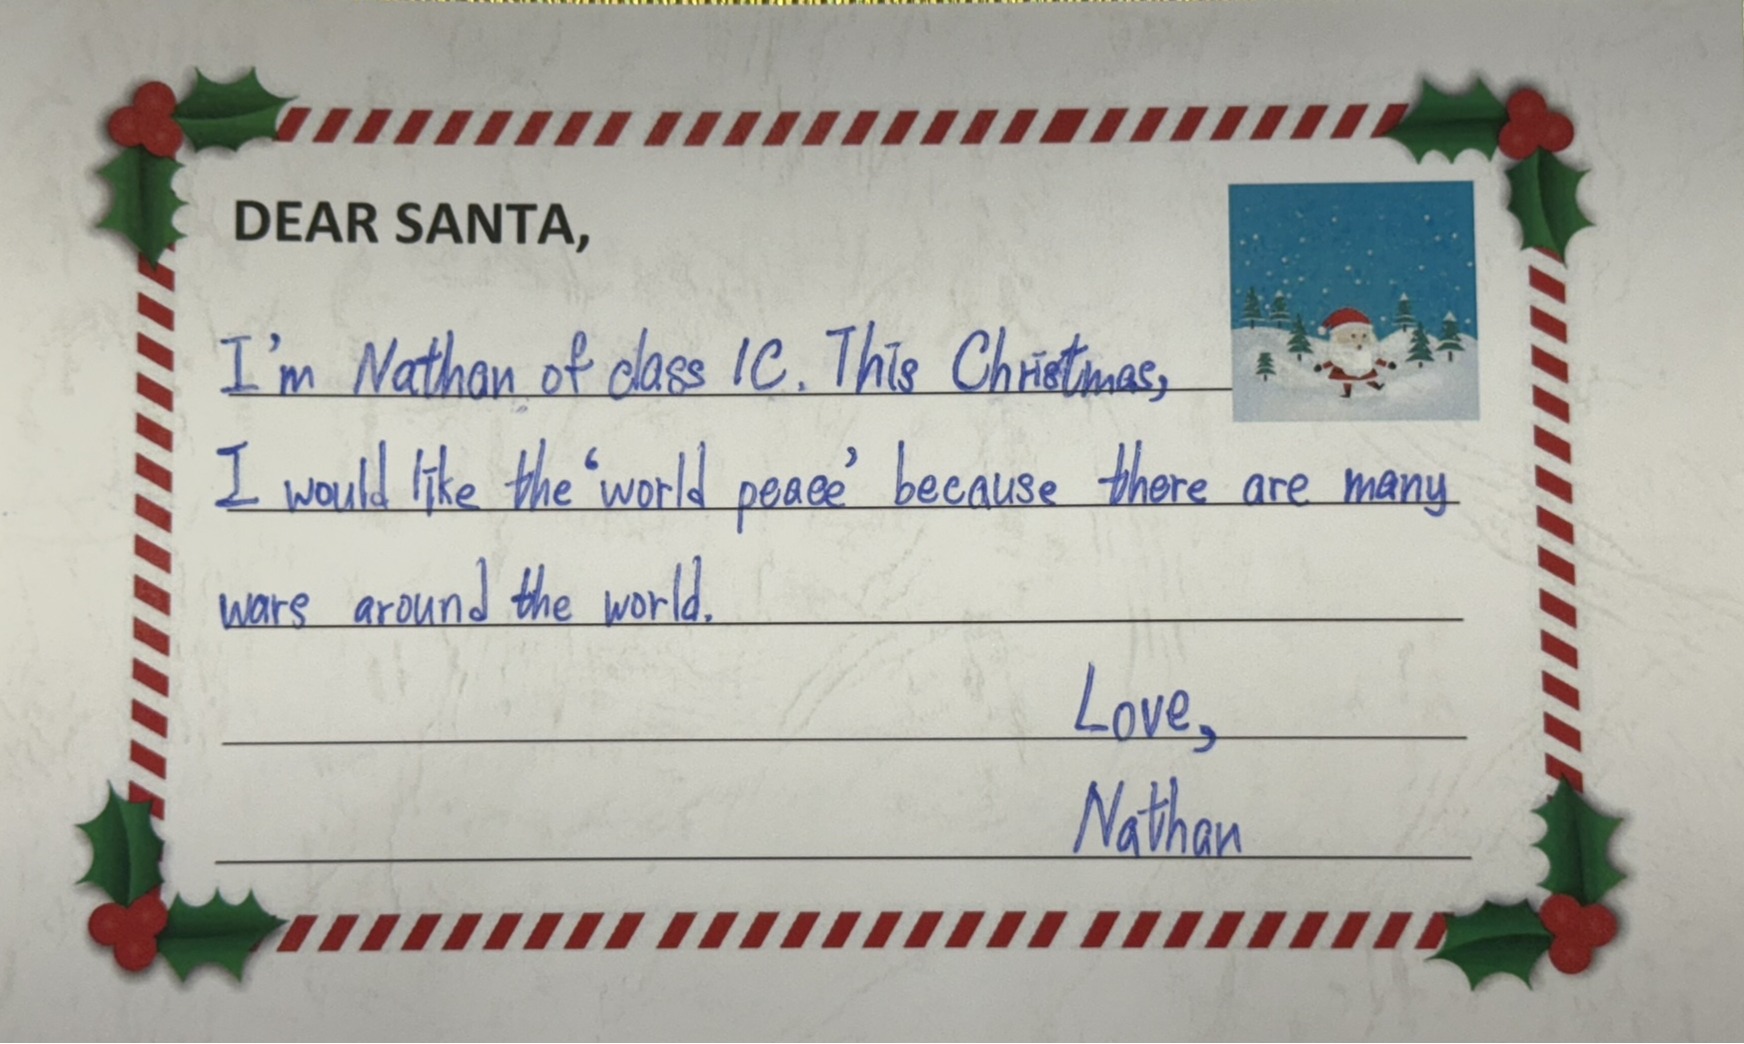 DEAR SANTA,
I'm Nathan of class 1C. This Christmas,
I would like the 'world peace' because there are many
wars around the world.
Love,
Nathan